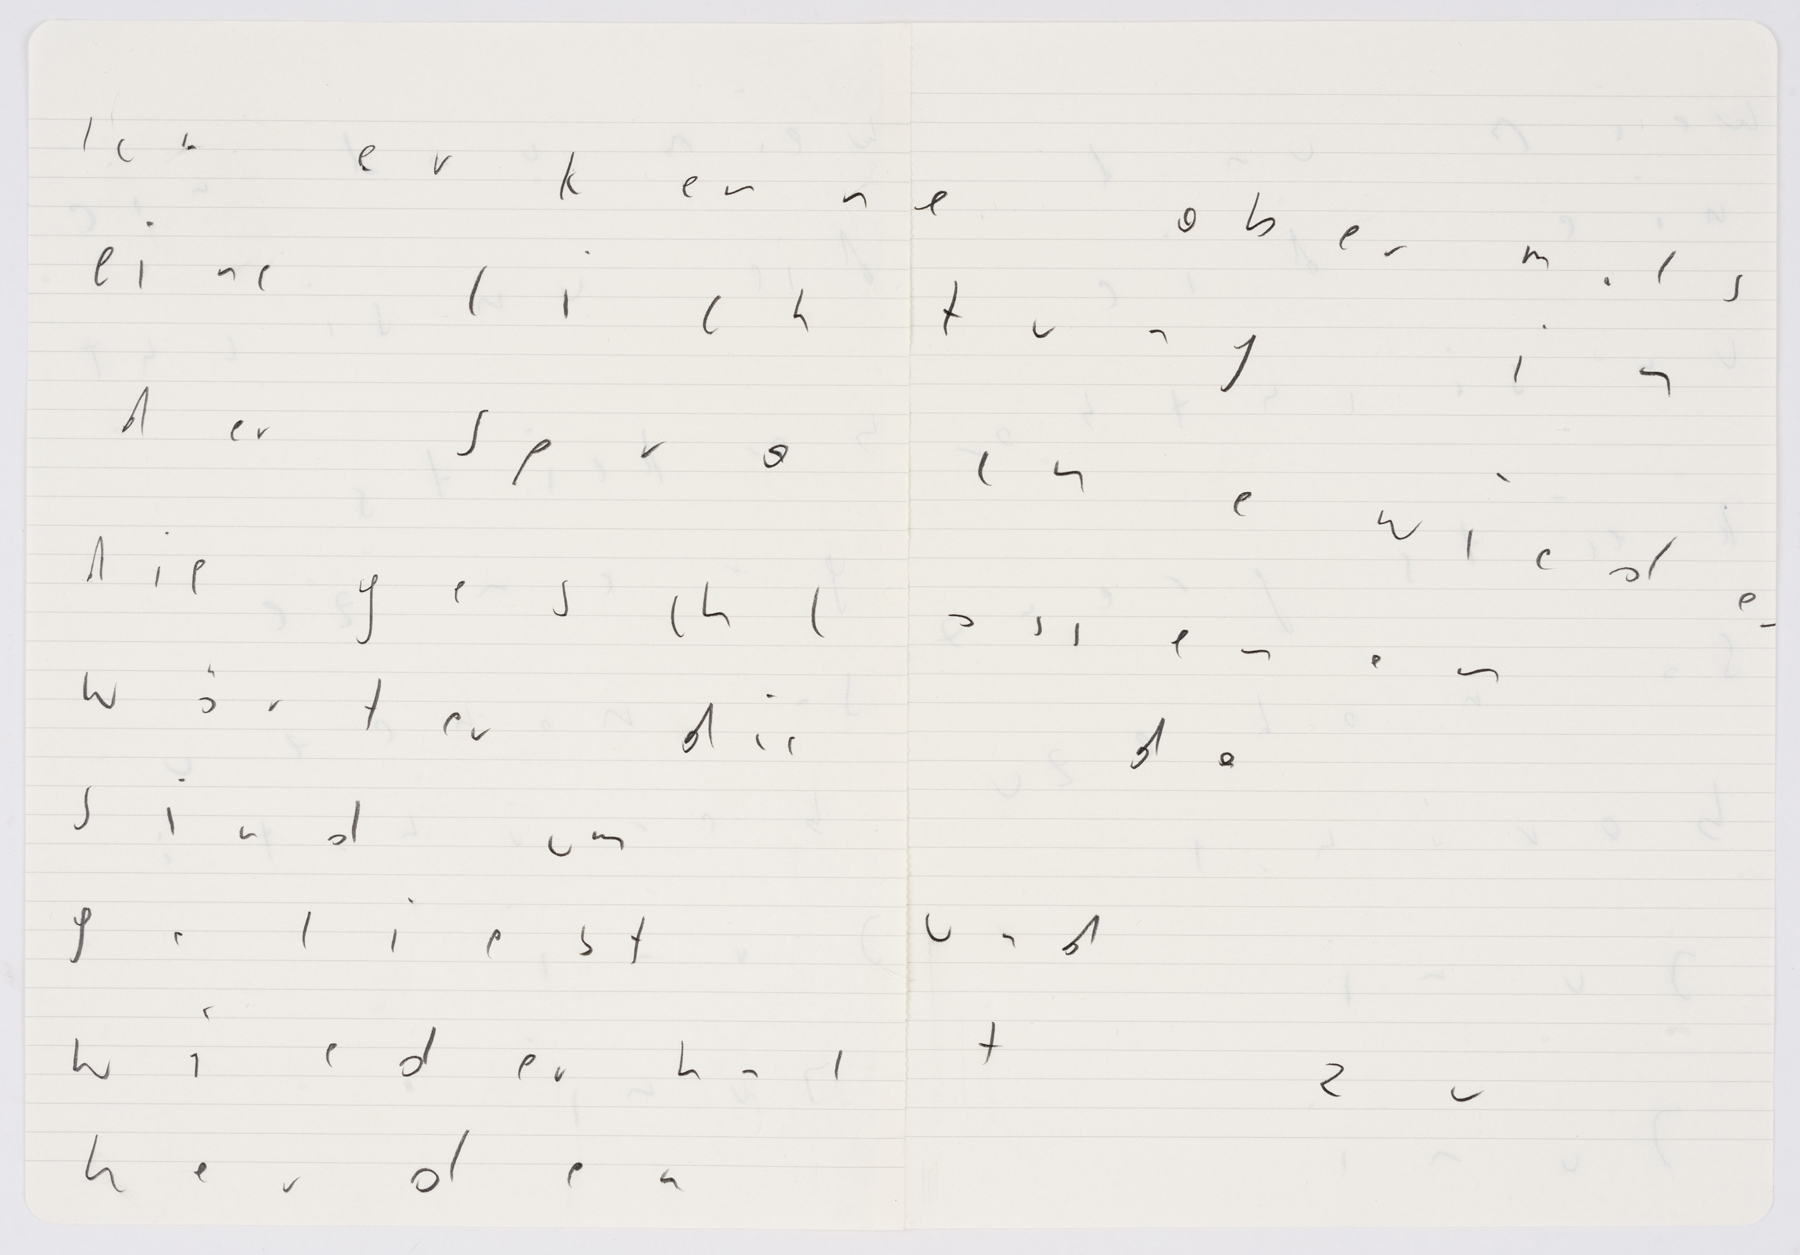 Ich erkenne abermals
eine lichtung in
der Sprache wieder
die geschlossenen
wörter die da
sind um
geliest und
wiederhalt zu
werden